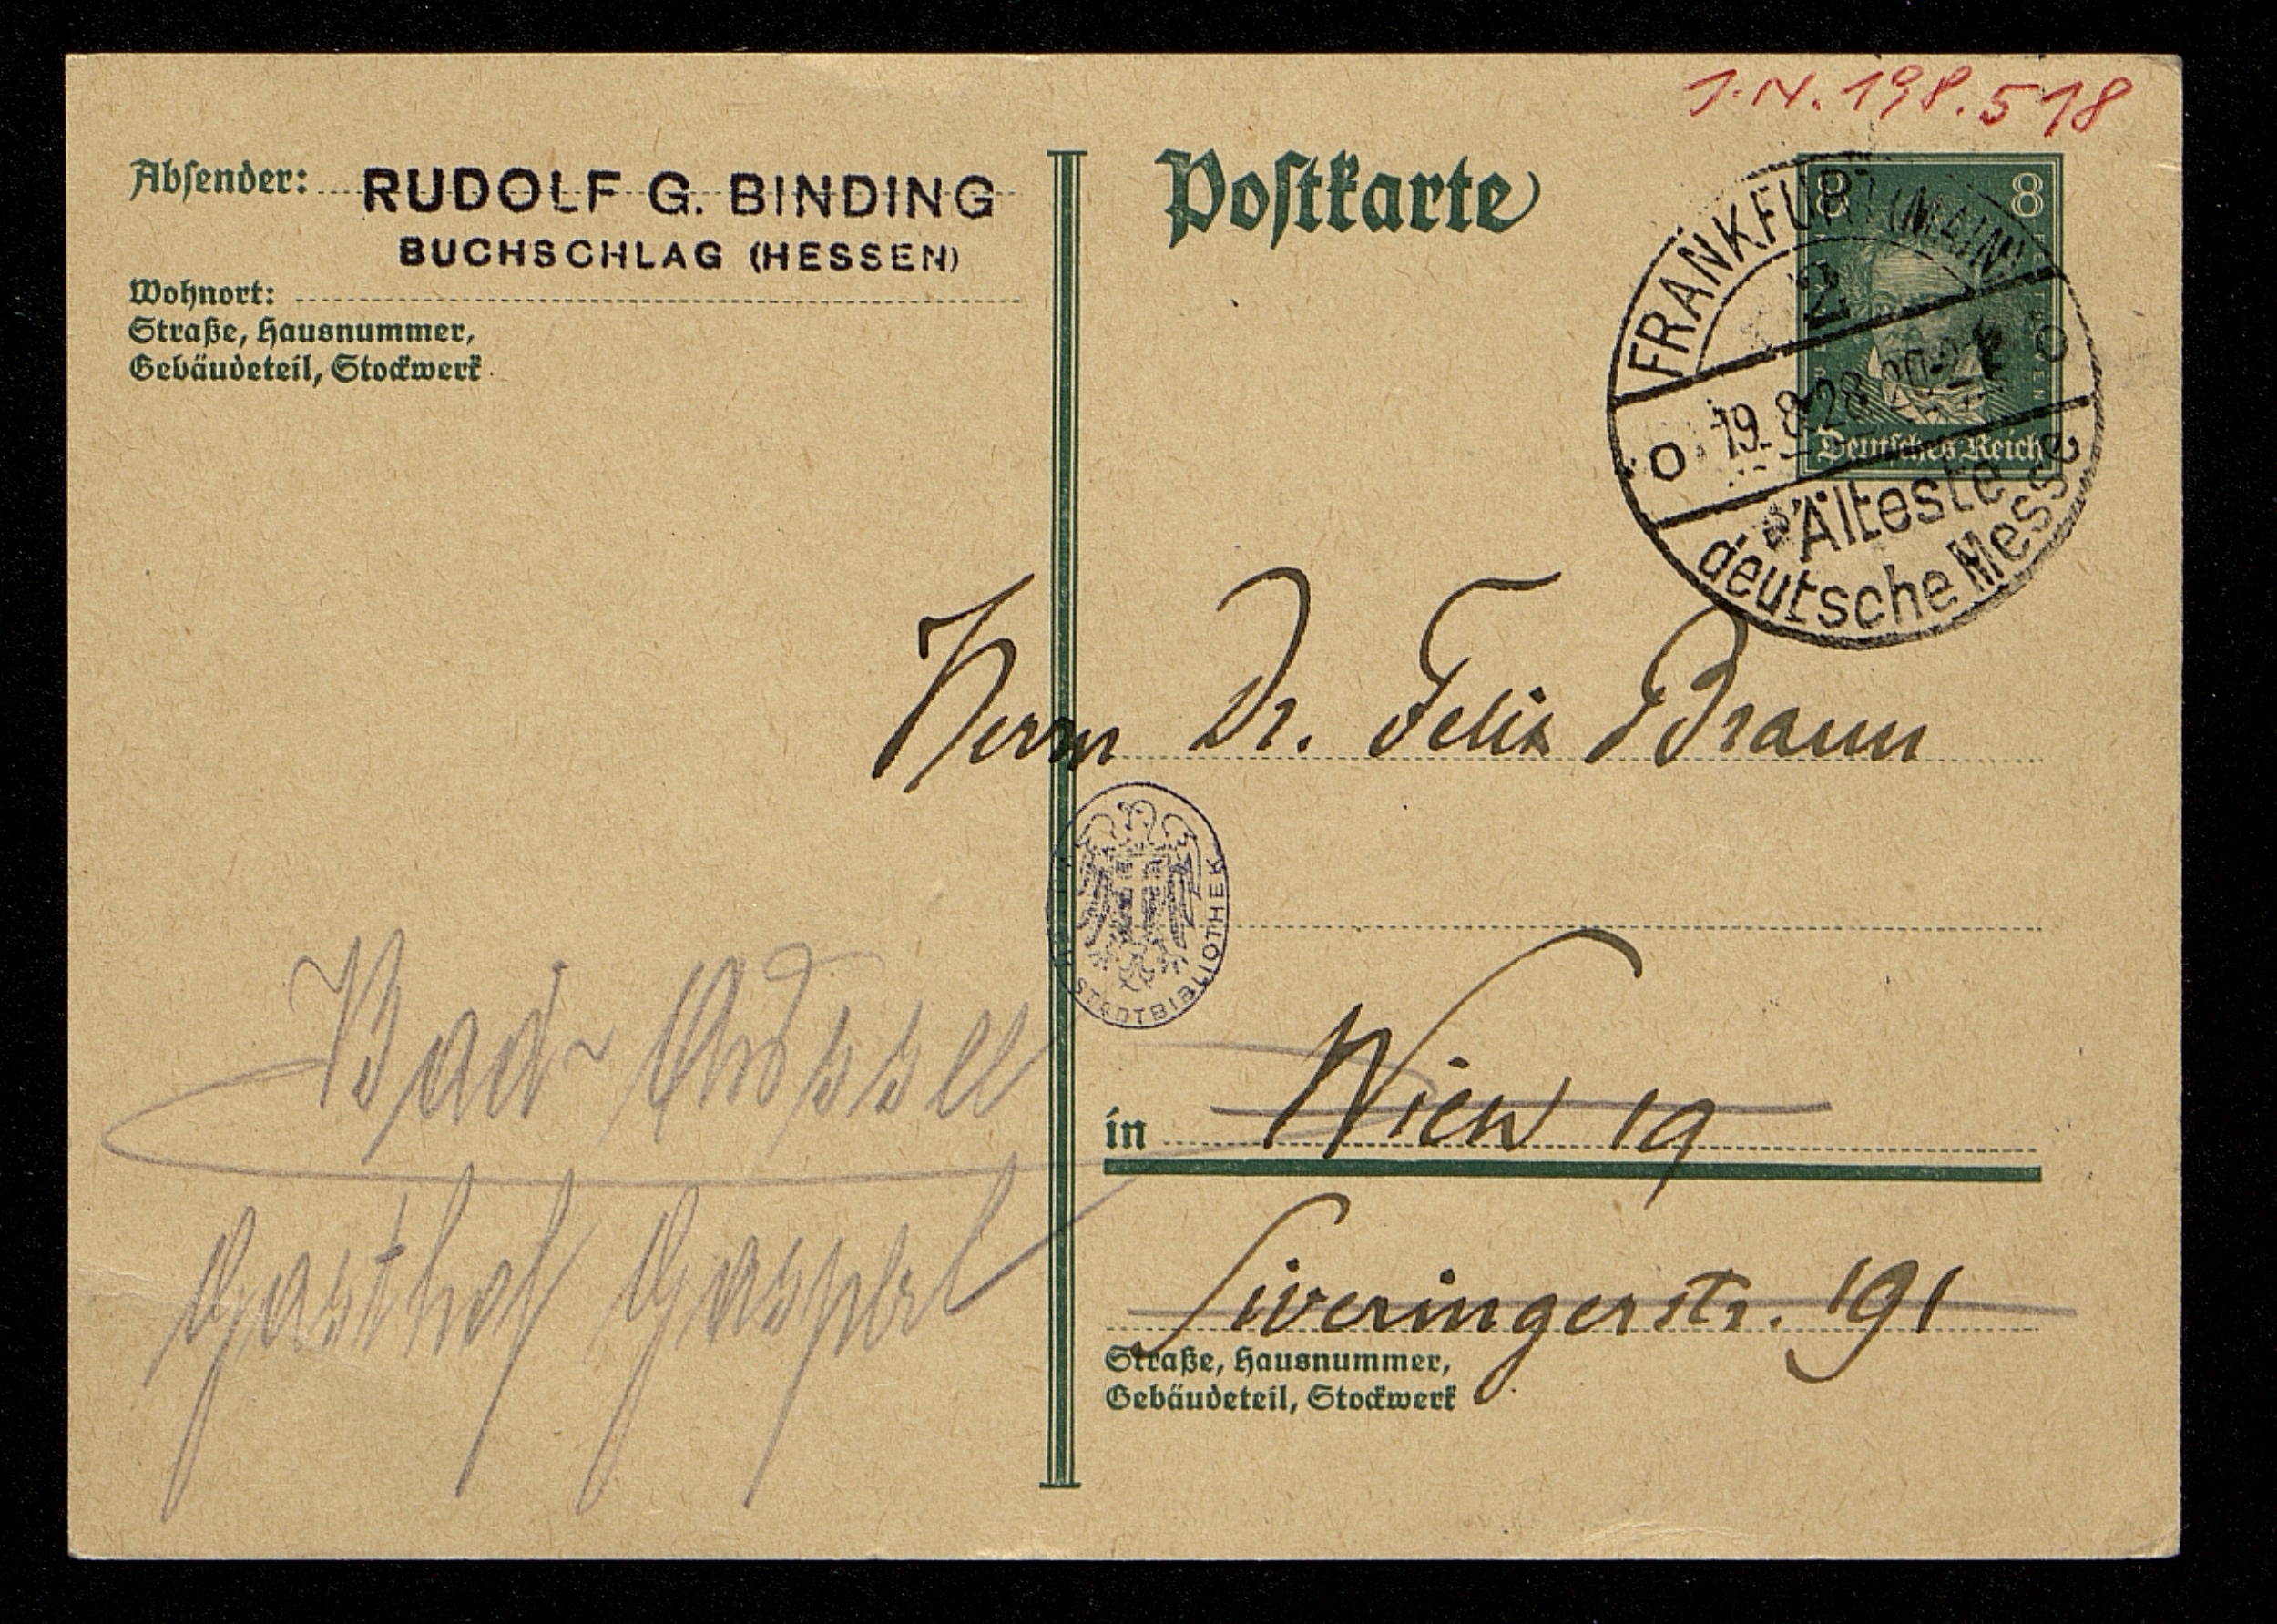 J.N. 198.518
Absender: RUDOLF G. BINDING
BUCHSCHLAG (HESSEN)
Wohnort:
Straße, Hausnummer,
Gebäudeteil, Stockwerk
Postkarte
8 8
Deutsches Reich
FRANKFURT (MAIN)
19.8.28. 20-21
Älteste
deutsche Messe
Herrn Dr. Felix Braun
STADTBIBLIOTHEK
in Wien 19
Siveringerstr. 191
Straße, Hausnummer,
Gebäudeteil, Stockwerk
Bad-Aussee
Gasthof Gasperl